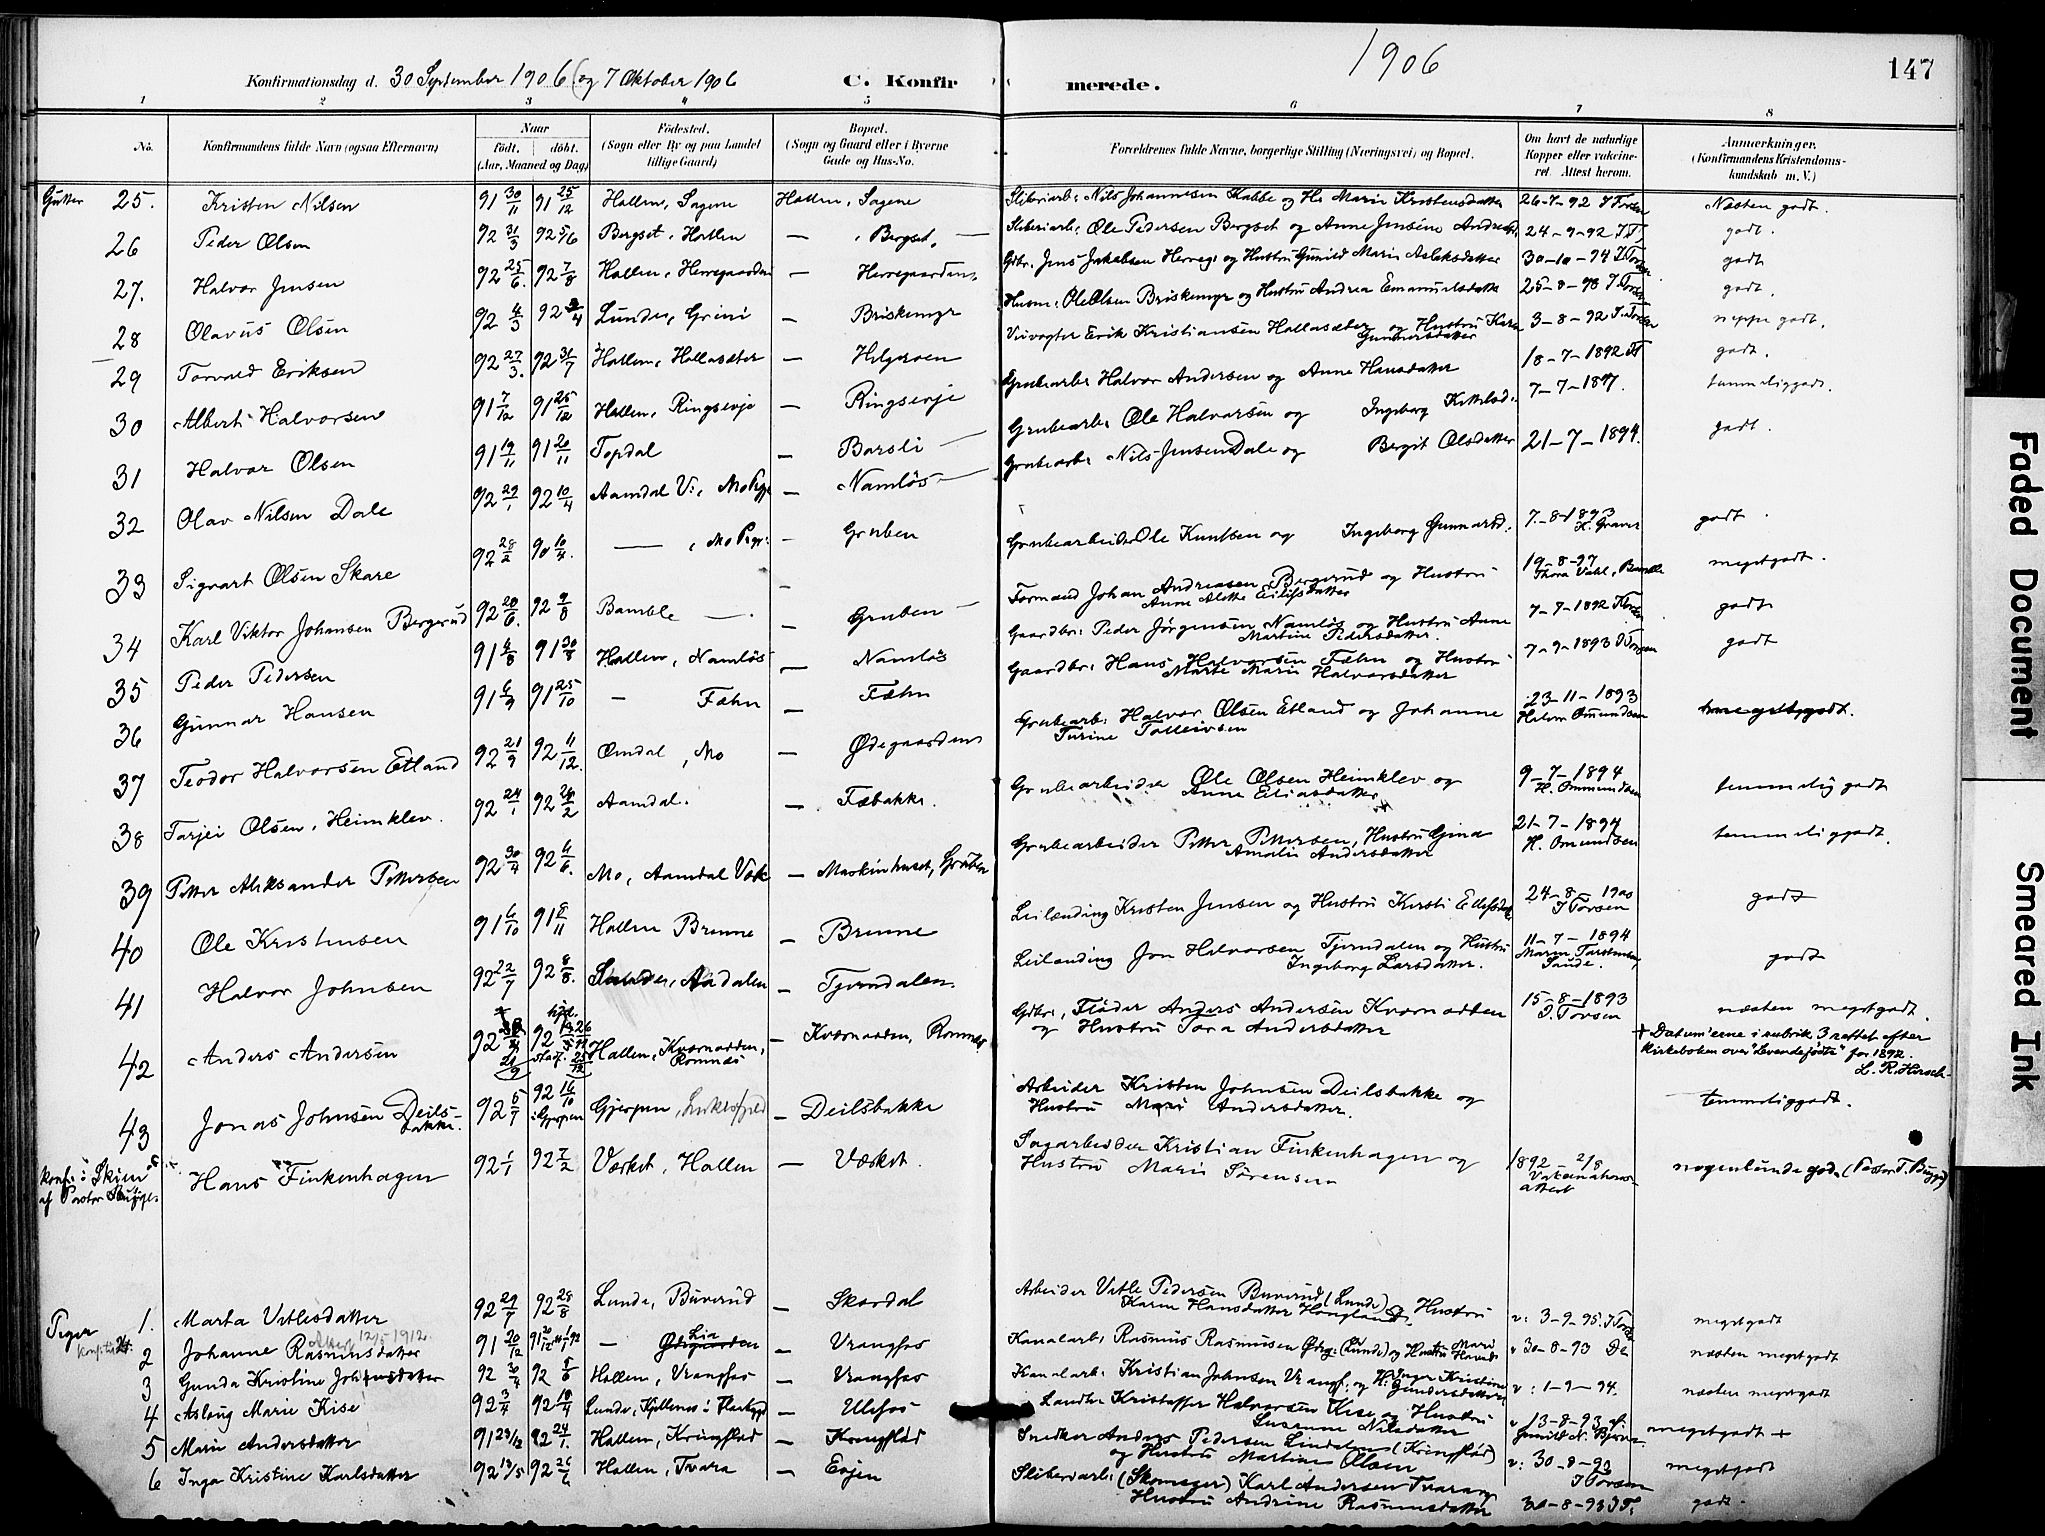 1906
147
Konfirmationsdag d. 30 September 1906 (og 7 Oktober 1906
C. Konfirmerede.
1 2 3 4 5 6 7 8
No.
Konfirmandens fulde Navn (ogsaa Efternavn)
Naar
født. døbt.
(Aar, Maaned og Dag)
Fødested.
(Sogn eller By og paa Landet
tillige Gaard)
Bopæl.
(Sogn og Gaard eller i Byerne
Gade og Hus-No.
Forældrenes fulde Navne, borgerlige Stilling (Næringsvei) og Bopæl.
Om havt de naturlige
Kopper eller vakcine-
ret. Attest herom.
Anmerkninger.
(Konfirmandens Kristendoms-
kundskab m. V.)
Gutter 25. Kristen Nilsen 91 30/11 91 25/12 Hollen, Sagene Hollen, Sagene Sliberiarb: Nils Johannesen Kabbe og H. Maria Kristensdatter 26-7-92 Næsten godt.
26 Peder Olsen 92 31/3 92 5/6 Bergset, Hollen — , Bergset, — Sliberiarb: Ole Pedersen Bergset og Anne Jensine 24-9-92 godt.
27. Halvor Jensen 92 25/6 92 7/8 Hollen, Herregaarden — Herregaarden Gdbr. Jens Jakobsen Herreg: og Hustru Gunild Maria Aslaksdatter 30-10-94 godt
28 Olavus Olsen 92 4/3 92 3/4 Lunde, Grini — Briskemyr Husm: Ole Olsen Briskemyr og Hustru Andrea Emanuelsdatter 25-8-98 godt.
29 Torvald Eriksen 92 27/3 92 31/7 Hollen, Hollasæter — Helgeroen Veivogter Erik Kristiansen Hollasæter og Hustru Karen Gunnersdatter 3-8-92 neppe godt.
30 Albert Halvorsen 91 7/12 91 25/12 Hollen, Ringsevje — Ringsevje Grubearb: Halvor Andersen og Anne Hansdatter 18-7-1892 godt.
31 Halvor Olsen 91 19/11 91 20/11 Topdal — Barsli — Grubearb: Ole Halvorsen og Ingeborg Kittelsd: 7-7-1897. temmeliggodt.
32 Olav Nilsen Dale 92 29/1 92 10/4 Aamdal V:, Mo — Namløs — Grubearb: Nils Jensen Dale og Bergit Olsdatter 21-7-1894. godt.
33 Sigvart Olsen Skare 92 28/2 — , Mo — Gruben Grubearbeider Ole Knutsen og Ingeborg Gunnarsd. 7-8-1893 godt.
34 Karl Viktor Johansen Bergerud 92 20/6. 92 9/8 Bamble — — Gruben — Formand Johan Andreasen Bergerud og Hustru Anne Alette Eilifsdatter 19-8-97 Thora Vahl, Bamble megetgodt.
35 Peder Pedersen 91 6/8 91 30/8 Hollen, Namløs — Namløs Gaardbr: Peder Jørgensen Namløs og Hustru Anne Martine Pedersdatter. 7-9-1892 godt
36 Gunnar Hansen 91 6/9 91 25/10 — Fæhn — Fæhn Gaardbr: Hans Halvorsen Fæhn og Hustru Marte Marie Halvorsdatter 7-9-1893 godt
37 Teodor Halvorsen Etland 92 21/9 92 11/12. Omdal, Mo — Ødegaarden Grubearb: Halvor Olsen Etland og Johanne Turine Tolleivsen 23-11-1893 Halvor Omundsen
38 Tarjei Olsen, Heimklev. 92 24/1 Aamdal. — Fæbakke. Grubearbeider Ole Olsen Heimklev og Anne Eliasdatter 9-7-1894 H. Ommundsen temmelig godt
39 Petter Aleksander Pettersen 92 30/4 92 6/6. Mo, Aamdal Værk — Maskinhuset, Gruben Grubearbeider Petter Pettersen, Hustru Gina Amalie Andersdatter 21-7-1894 H. Omundsen temmeliggodt.
40 Ole Kristensen 91 6/10 91 8/11 Hollen Brenne — Brenne Leilænding Kristen Jensen og Hustru Kirsti 24-8 1900 I Torsen godt
41 Halvor Johnsen 92 22/7 92 8/8. Aadalen — Tjerndalen Leilænding Jon Halvorsen Tjerndalen og Hustru Ingeborg Larsdatter. 11-7-1894 godt
42 Anders Andersen 92 92 Hollen, Kværnodden, Romnes — Kværnodden, Romnes Gdbr, Fløder Anders Andersen Kvernodden og Hustru Tora Andersdatter 15-8-1893 I. Torsen næsten megetgodt.
+ Datumerne i rubrik 3 rettet efter
kirkeboken over "Levendefødte" for 1892.
43 Jonas Johnsen Deilsbakke. 92 5/7 92 16/10 i Gjerpen Gjerpen, — Deilsbakke Arbeider Kristen Johnsen Deilsbakke og Hustru Mari Andersdatter. temmeliggodt.
Konf. i Skien af Pastor Hans Finkenhagen 92 1/1 92 7/2 Værket, Hollen — Værket. Sagarbeider Kristian Finkenhagen og Hustru Marie Sørensen 1892 2/8 nogenlunde godt (Pastor T. Bugge)
Piger 1. Marta Vetlesdatter 92 29/7 92 28/8 Lunde, Buverud — Skardal Arbeider Vetle Pedersen Buverud (Lunde) og Hustru Karen Hansdatter v: 3-9-95. megetgodt
2 Johanne Rasmusdatter 12/5 1912. 91 20/12 — Lia — Vrangfos Kanalarb: Rasmus Rasmussen (Lunde) og Hustru Mari v 30-8-93 næsten megetgodt
3 Gunda Kristine 92 30/4 92 Hollen, Vrangfos — Vrangfos Kanalarb: Kristian Johnsen Vrangf: og H: Inger Kristine Gundersdatter v: 1-9-94. næsten megetgodt
4 Aslaug Marie Kise 92 3/4 Lunde, — Ulefos Landh: Kristoffer Halvorsen Kise og Hustru Susanne Nilsdatter v 13-8-93 megetgodt +
5 Marie Andersdatter 91 23/12 92 24/1. Hollen, Kringflåd — Kringflåd Snedker Anders Pedersen Lindalen (Kringflåd) og Hustru Martine Olsen v: 30-8-93 I Torsen megetgodt
6 Inga Kristine Karlsdatter 92 19/5 92 26/6 Hollen, Tvara — Eojen Sliberiarb: (Skomager) Karl Andersen Tvara og Hustru Andrine Rasmusdatter 30-8-93 I T. godt.
Faded Document
Smeared Ink